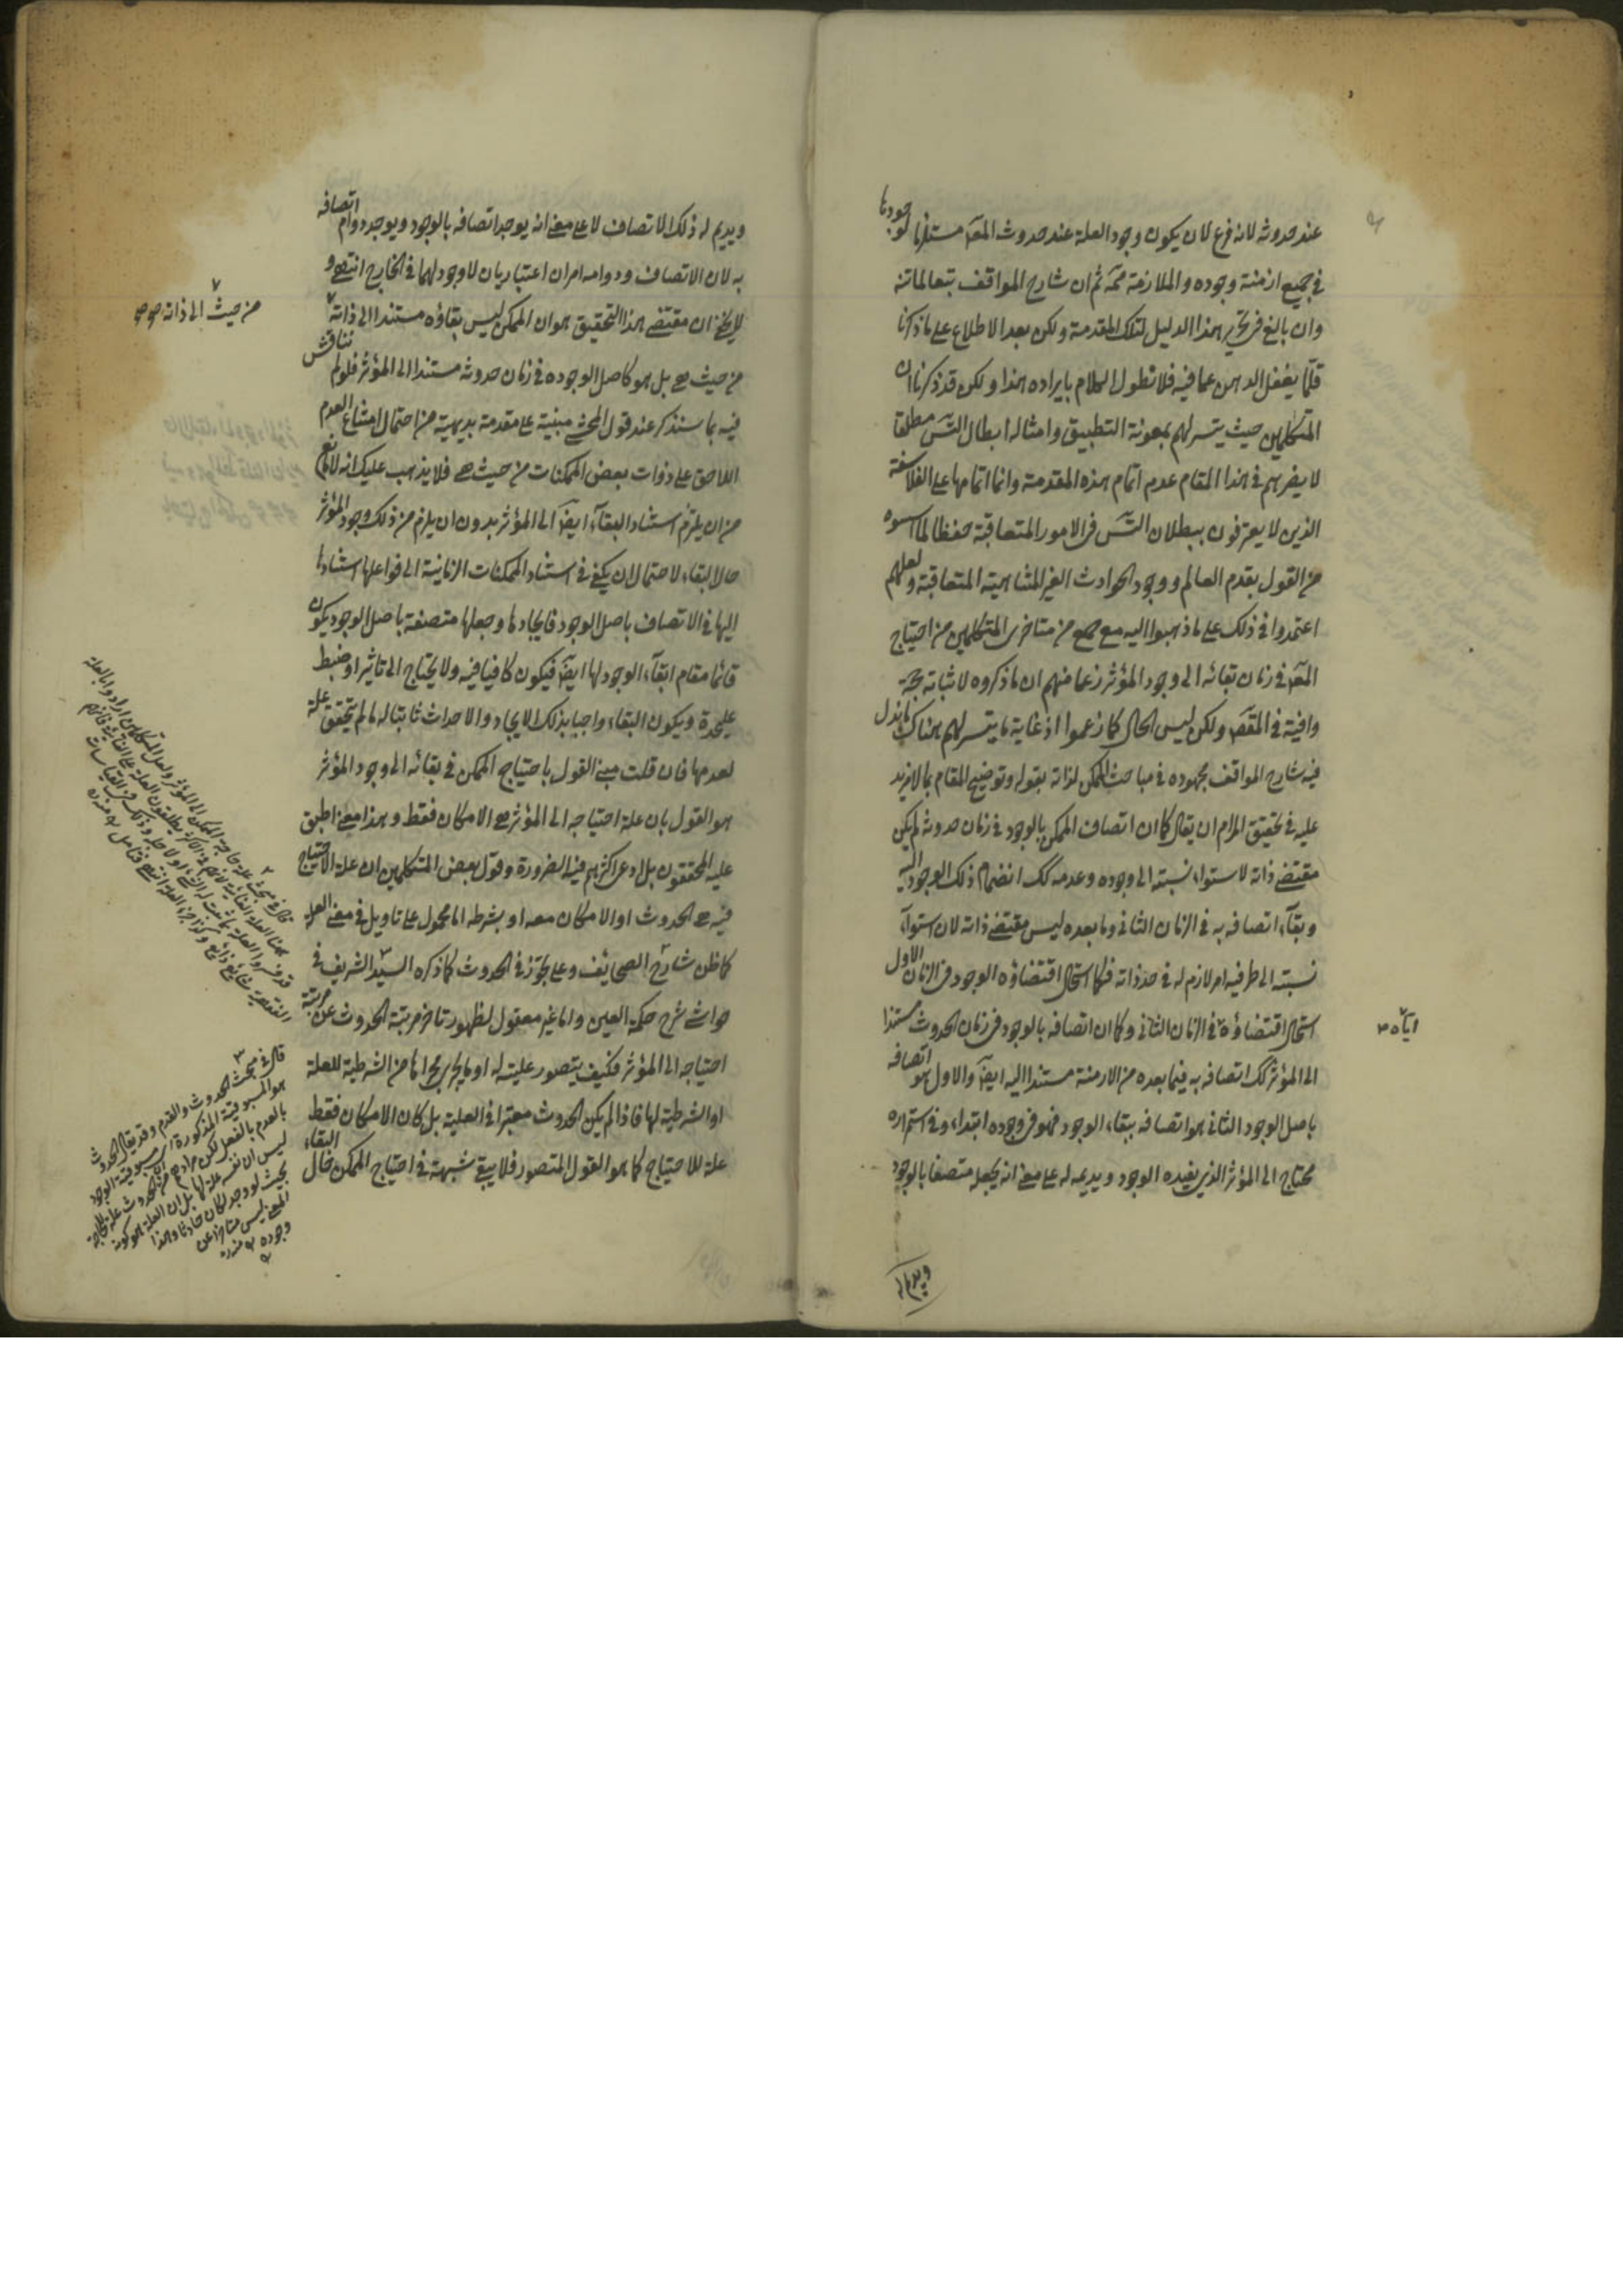 عند حدوثه لانه فرع لان يكون وجود العلة عند حدوث المعلول مستلزما لوجودها
فى جميع ازمنة وجوده والملازمة ثم ان شارح المواقف تبعا لماتنه
وان بالغ فى تحرير هذا الدليل لتلك المقدمة ولكن بعد الاطلاع على ما ذكرنا
قلما يغفل الذهن عما فيه فلا نطول الكلام بايراده هذا ولكن قد ذكرنا ان
المتكلمين حيث يتيسر لهم بمعونة التطبيق وامثاله ابطال التس مطلقا
لا يضرهم فى هذا المقام عدم اتمام هذه المقدمة وانما اتمامها على الفلاسفة
الذين لا يعترفون ببطلان التس فى الامور المتعاقبة حفظا لما اسسوه
من القول بقدم العالم ووجود الحوادث الغير المتناهية المتعاقبة ولعلهم
اعتمدوا فى ذلك على ما ذهبوا اليه مع جمع من متاخرى المتكلمين من احتياج
المعلول فى زمان بقائه الى وجود المؤثر زعما منهم ان ما ذكروه لاثباته حجة
وافية فى المقصد ولكن ليس الحال كما زعموا اذ غاية ما يتيسر لهم هناك ما بذل
فيه شارح المواقف مجهوده فى مباحث الممكن لذاته بقوله وتوضيح المقام بما لا مزيد
عليه فى تحقيق المرام ان يقال كما ان اتصاف الممكن بالوجود فى زمان حدوثه لم يكن
مقتضى ذاته لاستواء نسبته الى وجوده وعدمه كك انضمام ذلك الوجود اليه
وبقاء اتصافه به فى الزمان الثانى وما بعده ليس مقتضى ذاته لان استواء
نسبته الى طرفيه امر لازم له فى حد ذاته فكما استحال اقتضاؤه الوجود فى الزمان الاول
استحال اقتضاؤه فى الزمان الثانى وكما ان اتصافه بالوجود فى زمان الحدوث مستندا
اياه
الى المؤثر كك اتصافه به فيما بعده من الازمنة مستندا اليه ايضا والاول هو اتصافه
باصل الوجود الثانى هو اتصافه ببقاء الوجود فهو فى وجوده ابتداء وفى استمراره
محتاج الى المؤثر الذى يفيده الوجود ويديمه له على معنى انه يجعله متصفا بالوجود
ويديم له
ويديم له ذلك الاتصاف لا على معنى انه يوجد اتصافه بالوجود ويوجد دوام اتصافه
به لان الاتصاف ودوامه امران اعتباريان لا وجود لهما فى الخارج انتهى و
لا يخفى ان مقتضى هذا التحقيق هو ان الممكن ليس بقاؤه مستندا الى ذاته
من حيث الى ذاته صح
من حيث هى بل هو كاصل الوجود فى زمان حدوثه مستندا الى المؤثر فلو لم نناقش
فيه بما سنذكر عند قول المحشى مبنية على مقدمة بديهية من احتمال امتناع العدم
اللاحق على ذوات بعض الممكنات من حيث هى فلا يذهب عليك انه لا مانع
من ان يلزم استناد البقاء ايضا الى المؤثر بدون ان يلزم من ذلك وجود المؤثر
حال البقاء لاحتمال ان يكفى فى استناد الممكنات الزمانية الى فواعلها استنادها
اليها فى الاتصاف باصل الوجود فايجادها وجعلها متصفة باصل الوجود يكون
قائما مقام ابقاء الوجود لها ايضا فيكون كافيا فيه ولا يحتاج الى تاثير او ضبط
عليحدة ويكون البقاء واجبا بذلك الايجاد والاحداث ثابتا له ما لم يتحقق علة
لعدمها فان قلت مبنى القول باحتياج الممكن فى بقائه الى وجود المؤثر
هو القول بان علة احتياجه الى المؤثر هى الامكان فقط وهذا معنى اطبق
عليه المحققون بل ادعى اكثرهم فيه الضرورة وقول بعض المتكلمين ان علة الاحتياج
فيه هى الحدوث او الامكان معه او بشرطه اما محمول على تاويل فى معنى العلة
كما ظن شارح الصحايف وعلى تجوز فى الحدوث كما ذكره السيد الشريف فى
حواشى شرح حكمة العين واما غير معقول لظهور تاخر مرتبة الحدوث عن مرتبة
احتياجه الى المؤثر فكيف يتصور عليته له او ما يجرى مجراها من الشرطية للعلة
او الشرطية لها فاذا لم يكن الحدوث معتبرا فى العلية بل كان الامكان فقط
علة للاحتياج كما هو القول المتصور فلا يبقى شبهة فى احتياج الممكن حال البقاء
قال فى مبحث الحدوث والقدم وقد يقال الحدوث
هو المسبوقية المذكورة اى مسبوقية الوجود
بالعدم بالفعل لكن مرادهم من الحدوث علة للحاجة
ليس ان نفسه علة لها بل ان العلة هو كونه
بحيث لو وجد لكان حادثا وهذا
المعنى ليس متاخرا عن
وجوده منه